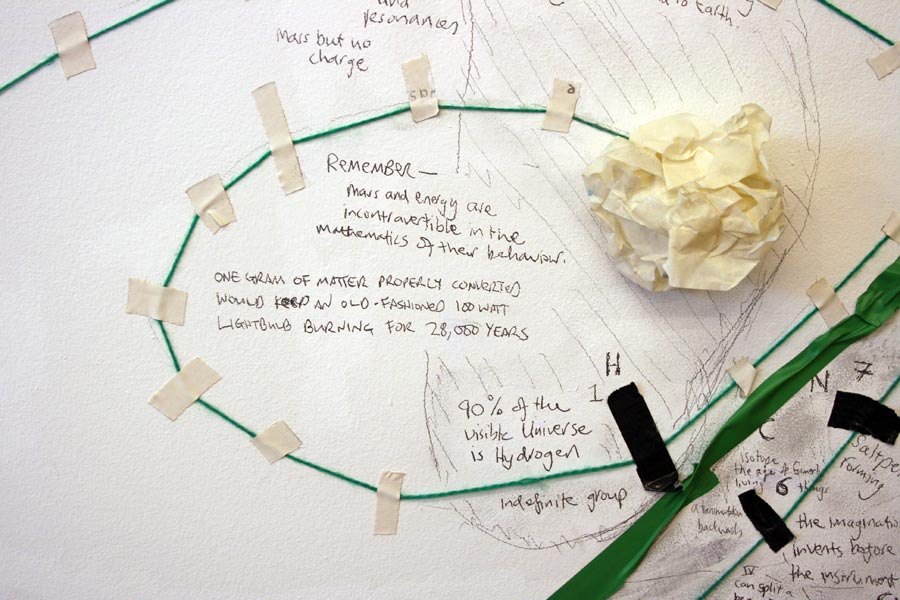 and
resonances
to Earth.
Mass but no
charge
REMEMBER —
Mass and energy are
incontravertible in the
mathematics of their behaviour.
ONE GRAM OF MATTER PROPERLY CONVERTED
WOULD KEEP AN OLD-FASHIONED 100 WATT
LIGHTBULB BURNING FOR 28,000 YEARS
H
1
90% of the
visible Universe
is Hydrogen
indefinite group
N 7
C
6
Isotope
living things
backwards
forming
the imaginatio
invents before
the instrument
IV
can split a